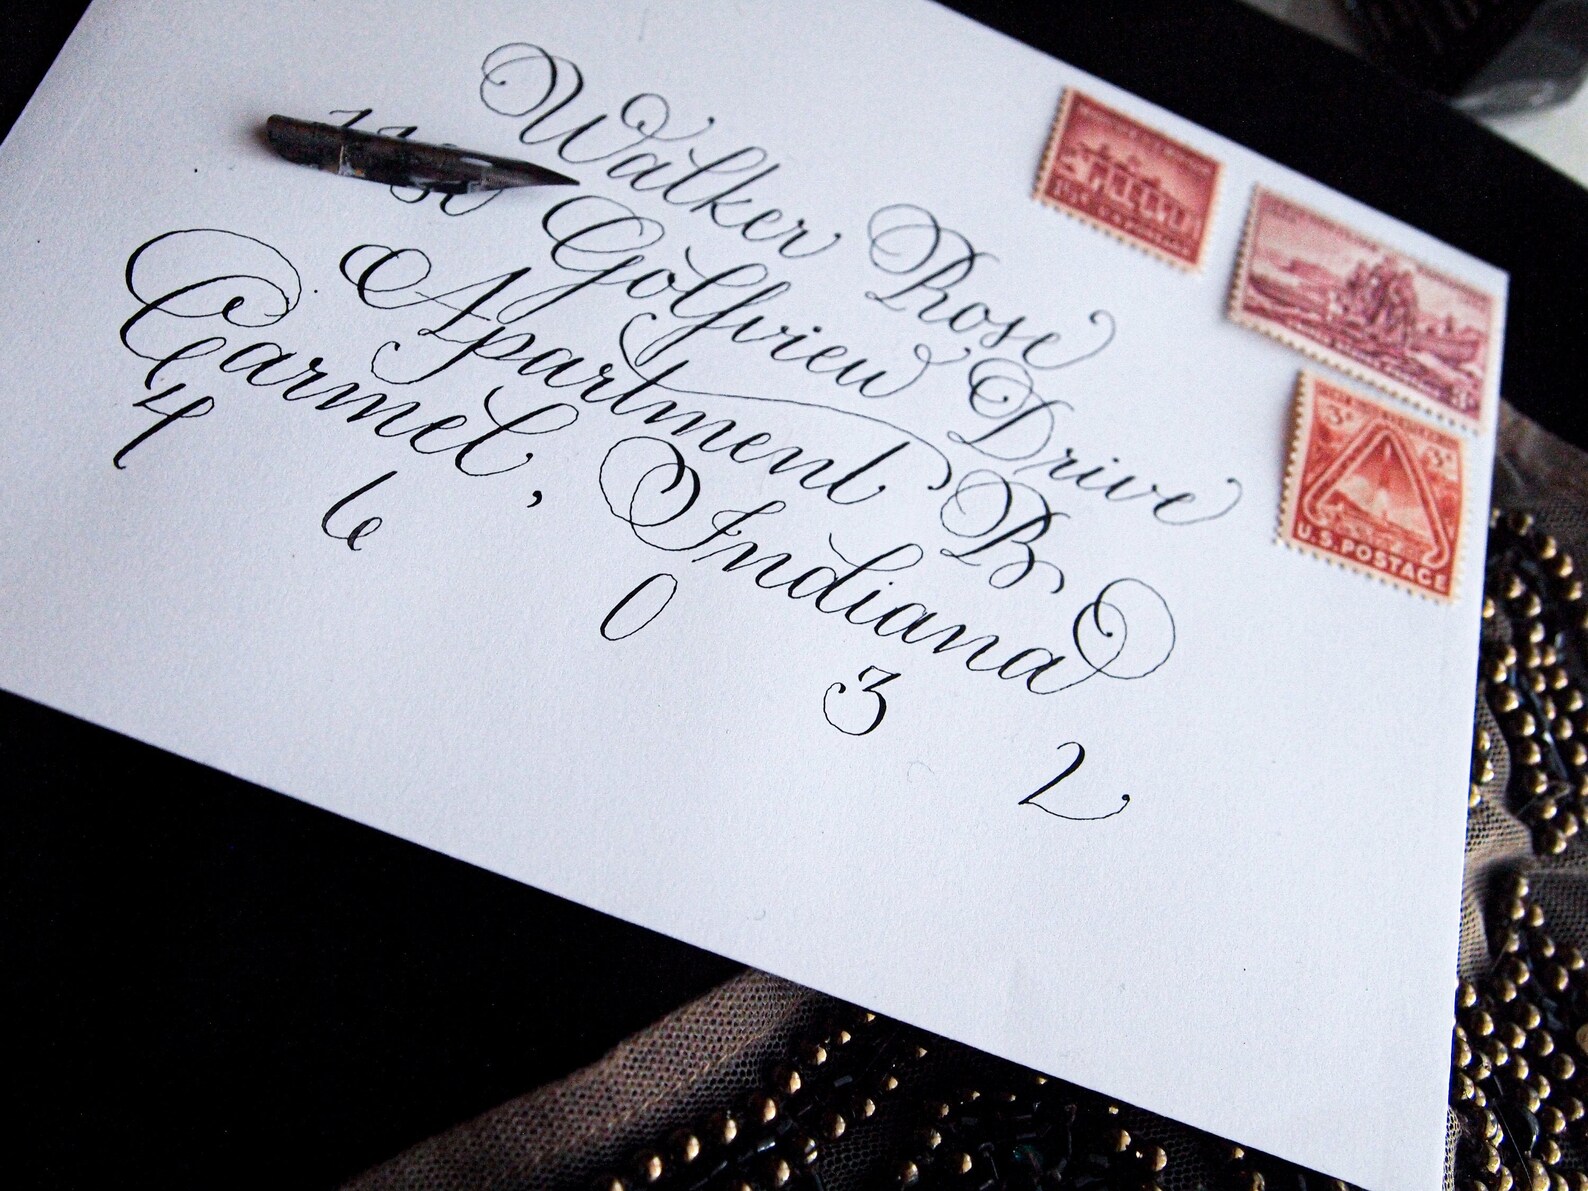 Walker Rose
Golfview Drive
Apartment B
Carmel, Indiana
4 6 0 3 2
3¢
3¢ 3¢
U.S. POSTAGE